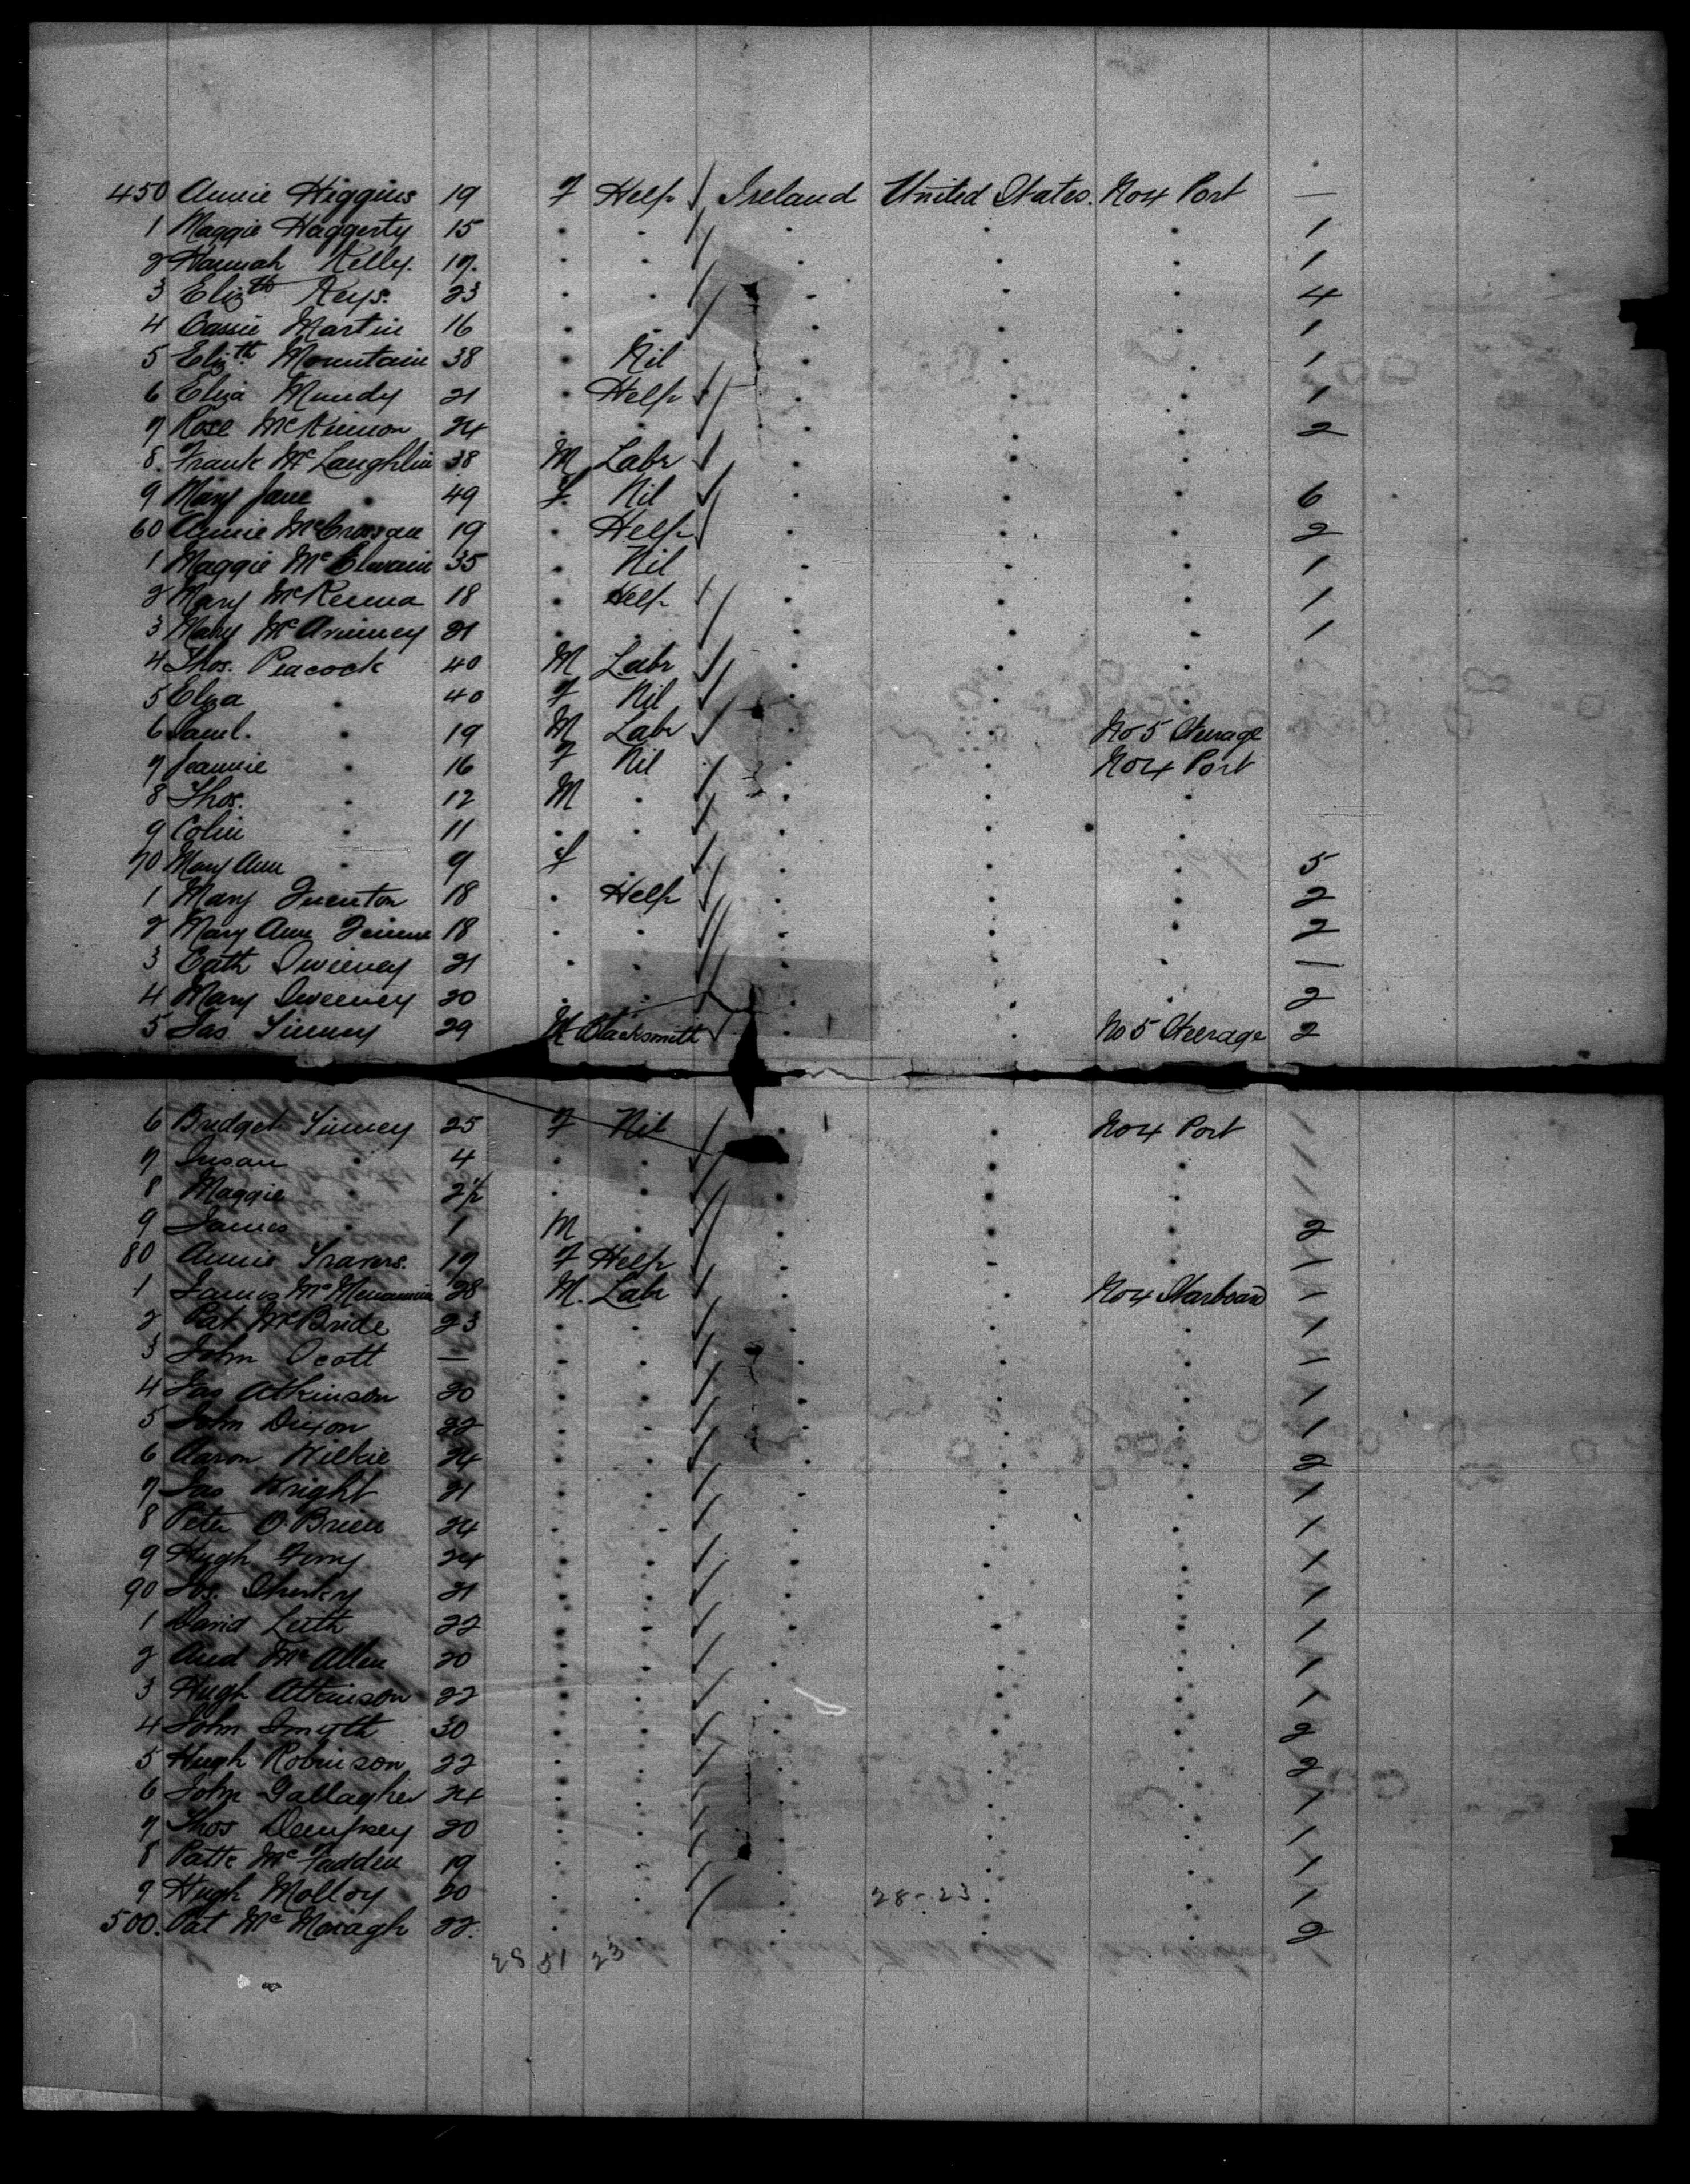 450 Annie Higgins 19 F Help Ireland United States. No 4 Port —
1 Maggie Haggerty 15 . . . . . 1
2 Hannah Kelly. 17. . . . . . 1
3 Elizth Keys. 23 . . . . . 4
4 Cassie Martin 16 . . . . . 1
5 Elizth Mountain 38 . Nil . . . 1
6 Eliza Mundy 21 . Help . . . 1
7 Rose McKinnon 24 . . . . . 2
8. Frank McLaughlin 38 M Labr . . .
9 Mary Jane . 49 F. Nil . . . 6
60 Annie McCrossan 19 . Help . . . 2
1 Maggie McElwain 35 . Nil . . . 1
2 Mary McKenna 18 . Help . . . 1
3 Mary 21 . . . . . 1
4 Thos. Peacock 40 M Labr . . .
5 Eliza . 40 F Nil . . .
6 Saml. . 19 M Labr . . No 5 Steerage
7 Jeannie . 16 F Nil . . No 4 Port
8 Thos. . 12 M . . . .
9 Colin . 11 . . . . .
70 Mary Ann . 9 F . . . . 5
1 Mary Quenton 18 . Help . . . 2
2 Mary Ann 18 . . . . . 2
3 Cath Sweeney 21 . . . . . —
4 Mary Sweeney 20 . . . . . 2
5 Jas Tinney 29 M Blacksmith . No 5 Steerage 2
6 Bridget Tinney 25 F Nil . . No 4 Port
7 Susan . 4 . . . . .
8 Maggie . 2½ . . . . .
9 James . 1 M . . . . 2
80 Annie Travers. 17 F Help . . . 1
1 James McMenamin 28 M. Labr . . No 4 Starboard 1
2 Pat McBride 23 . . . . . 1
3 John Scott — . . . . . 1
4 Jas Atkinson 20 . . . . . 1
5 John Dixon 22 . . . . . 1
6 Aaron Wilkie 24 . . . . . 2
7 Jas Wright 21 . . . . . 1
8 Peter O'Brien 24 . . . . . 1
9 Hugh Ferry 24 . . . . . 1
90 Jos. 21 . . . . . 1
1 David Leith 22 . . . . . 1
2 And McAllen 20 . . . . . 1
3 Hugh Atkinson 22 . . . . . 1
4 John Smyth 30 . . . . . 2
5 Hugh Robinson 22 . . . . . 2
6 John Gallagher 24 . . . . . 1
7 Thos Dempsey 20 . . . . . 1
8 Pattk McFadden 19 . . . . . 1
9 Hugh Molloy 20 . . . 28-23 . . 1
500. Pat McMonagh 22. . . . . . 2
28 51 23